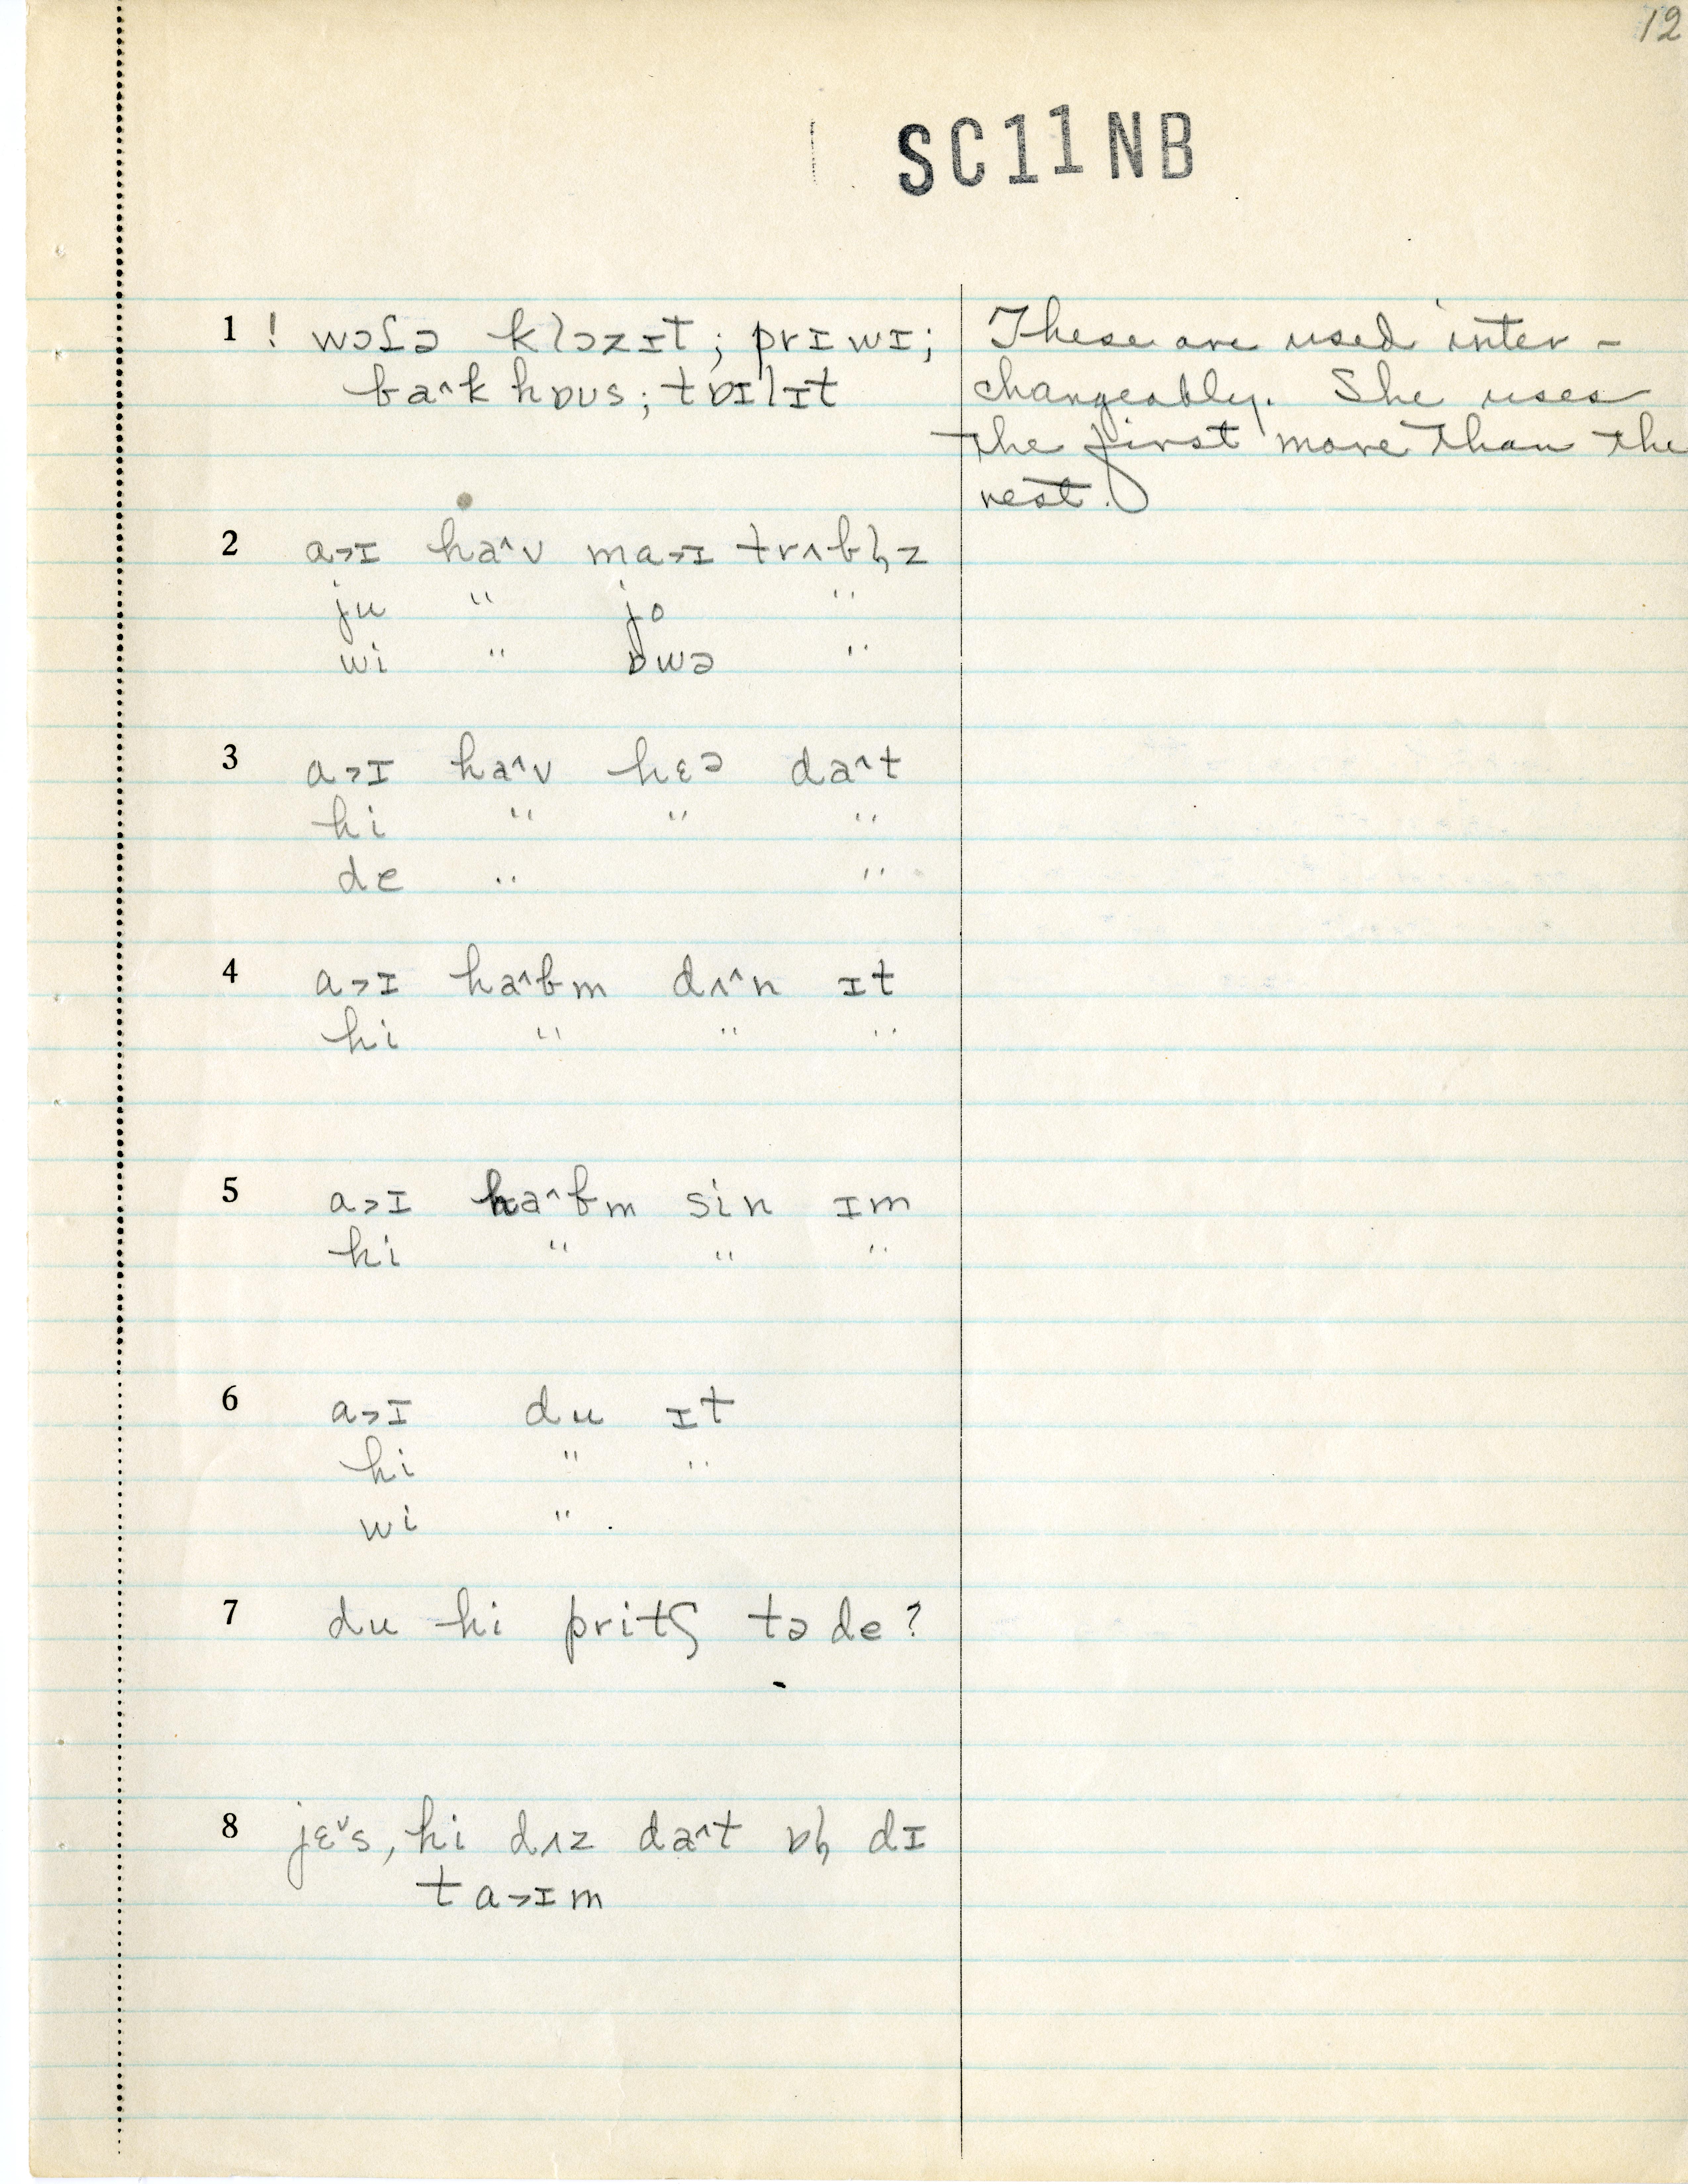 12
SC11NB
1 ! wɔʃə klɔzɪt; prɪwɪ;
ba^k hɒʊs; tɒɪlɪt
These are used inter-
changeably. She uses
the first more than the
rest.
2 a˃ɪ ha^v ma˃ɪ trʌbl̩z
ju " jo "
wi " ɒwə "
3 a˃ɪ ha^v hɛə da^t
hi " " "
de " "
4 a˃ɪ ha^bm dʌ^n ɪt
hi " " "
5 a˃ɪ ha^bm sin ɪm
hi " " "
6 a˃ɪ du ɪt
hi " "
wi "
7 du hi pritʃ tə de?
8 jɛ˅s, hi dʌz da^t ɒl̩ dɪ
ta˃ɪm